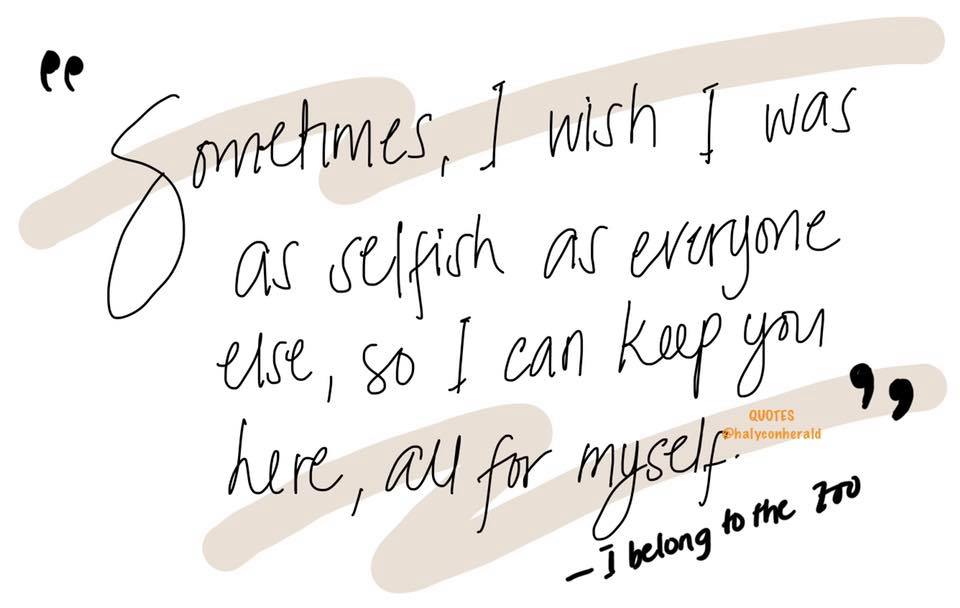 “
Sometimes, I wish I was
as selfish as everyone
else, so I can keep you
here, all for myself.
”
QUOTES
@halyconherald
— I belong to the zoo